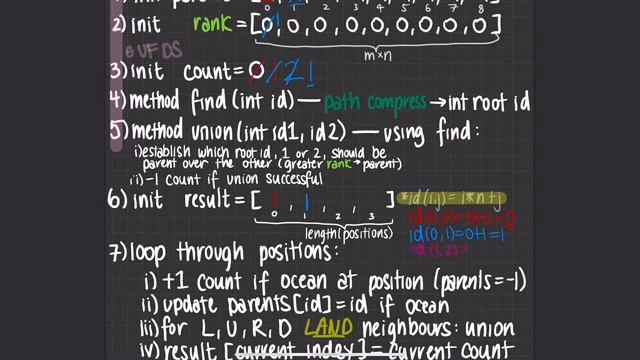 2) init rank = [0, 0, 0, 0, 0, 0, 0, 0, 0]
m*n
UFDS
3) init count = 0 1 2 1
4) method find (int id) — path compress → int root id
5) method union (int id1, id2) — using find:
i) establish which root id, 1 or 2, should be
parent over the other (greater rank → parent)
ii) -1 count if union successful
6) init result = [ 1 , 1 , , ]
0 1 2 3
length(positions)
*id(i,j) = i*n+j
id(0,0)=0+0=0
id(0,1)=0+1=1
id(1,2)=
7) loop through positions:
i) +1 count if ocean at position (parents=-1)
ii) update parents[id]=id if ocean
iii) for L, U, R, D LAND neighbours: union
iv) result [current index] = current count